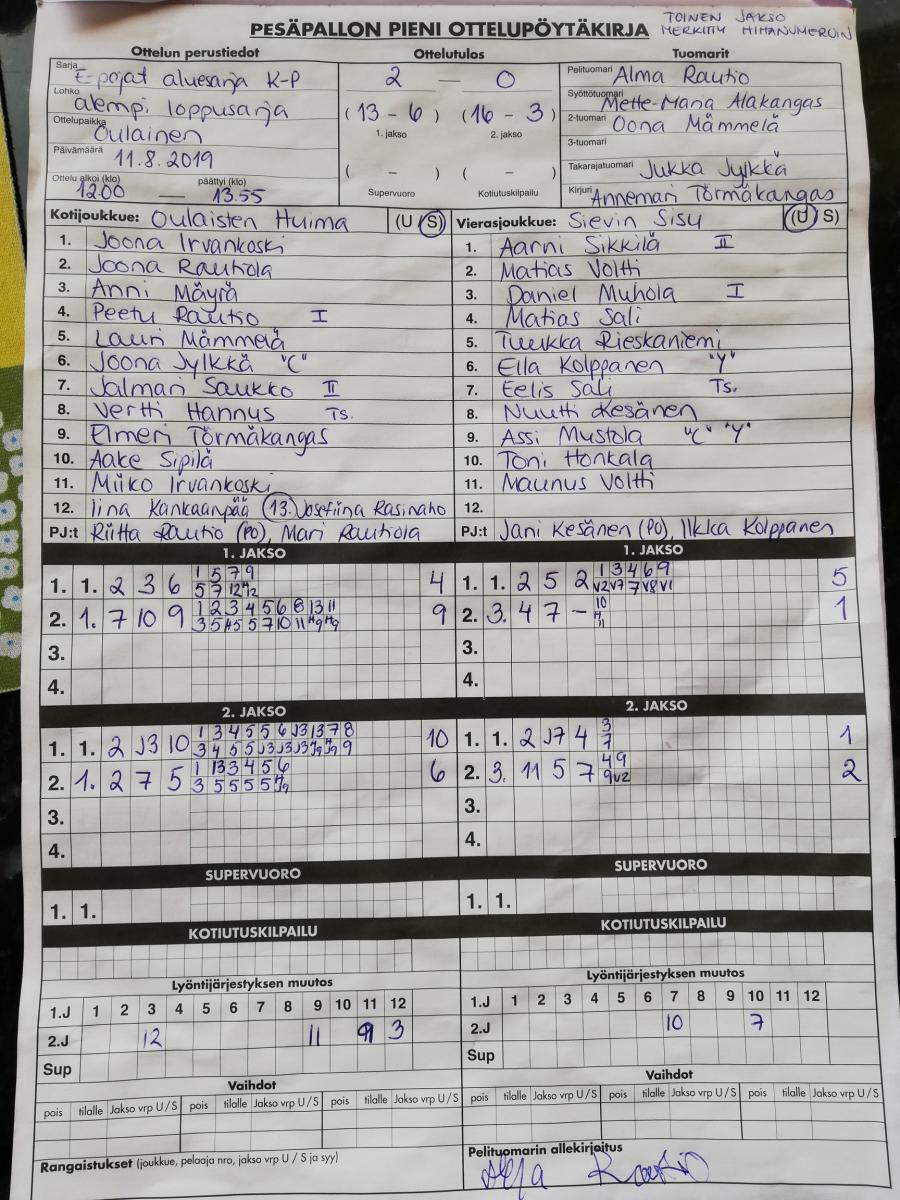 PESÄPALLON PIENI OTTELUPÖYTÄKIRJA
TOINEN JAKSO
MERKITTY HIHANUMEROIN
Ottelun perustiedot Ottelutulos Tuomarit
Sarja E-pojat aluesarja K-P
Lohko alempi loppusarja
Ottelupaikka Oulainen
Päivämäärä 11.8.2019
Ottelu alkoi (klo) 12.00 päättyi (klo) 13.55
2 — 0
(13 - 6) (16 - 3)
1. jakso 2. jakso
( - ) ( - )
Supervuoro Kotiutuskilpailu
Pelituomari Alma Rautio
Syöttötuomari Mette-Maria Alakangas
2-tuomari Oona Mämmelä
3-tuomari
Takarajatuomari Jukka Jylkkä
Kirjuri Annemari Törmäkangas
Kotijoukkue: Oulaisten Huima (U S)
1. Joona Irvankoski
2. Joona Rautiola
3. Anni Mäyrä
4. Peetu Rautio I
5. Lauri Mämmelä
6. Joona Jylkkä "C"
7. Jalmari Saukko II
8. Vertti Hannus Ts.
9. Elmeri Törmäkangas
10. Aake Sipilä
11. Miiko Irvankoski
12. Iina Kankaanpää 13. Josefiina Rasinaho
PJ:t Riitta Rautio (PO), Mari Rautiola
Vierasjoukkue: Sievin Sisu (U S)
1. Aarni Sikkilä II
2. Matias Voltti
3. Daniel Muhola I
4. Matias Sali
5. Tuukka Rieskaniemi
6. Ella Kolppanen "Y"
7. Eelis Sali Ts.
8. Nuutti Kesänen
9. Assi Mustola "C" "Y"
10. Toni Honkala
11. Maunus Voltti
12.
PJ:t Jani Kesänen (PO), Ilkka Kolppanen
1. JAKSO
1. 1. 2 3 6 1 5 7 9 4
5 7 12
2. 1. 7 10 9 1 2 3 4 5 6 8 13 11 9
3.
4.
1. JAKSO
1. 1. 2 5 2 1 3 4 6 9 5
V2 V7 7 V8 V1
2. 3. 4 7 - 10 1
11
3.
4.
2. JAKSO
1. 1. 2 J3 10 1 3 4 5 5 6 J3 13 7 8 10
2. 1. 2 7 5 1 13 3 4 5 6 6
3 5 5 5 5
3.
4.
2. JAKSO
1. 1. 2 J7 4 3 1
7
2. 3. 11 5 7 4 9 2
9 V2
3.
4.
SUPERVUORO
1. 1.
SUPERVUORO
1. 1.
KOTIUTUSKILPAILU
KOTIUTUSKILPAILU
Lyöntijärjestyksen muutos
1.J 1 2 3 4 5 6 7 8 9 10 11 12
2.J 12 11 9 3
Sup
Lyöntijärjestyksen muutos
1.J 1 2 3 4 5 6 7 8 9 10 11 12
2.J 10 7
Sup
Vaihdot
pois tilalle Jakso vrp U / S pois tilalle Jakso vrp U / S pois tilalle Jakso vrp U / S
Vaihdot
pois tilalle Jakso vrp U / S pois tilalle Jakso vrp U / S pois tilalle Jakso vrp U / S
Rangaistukset (joukkue, pelaaja nro, jakso vrp U / S ja syy)
Pelituomarin allekirjoitus